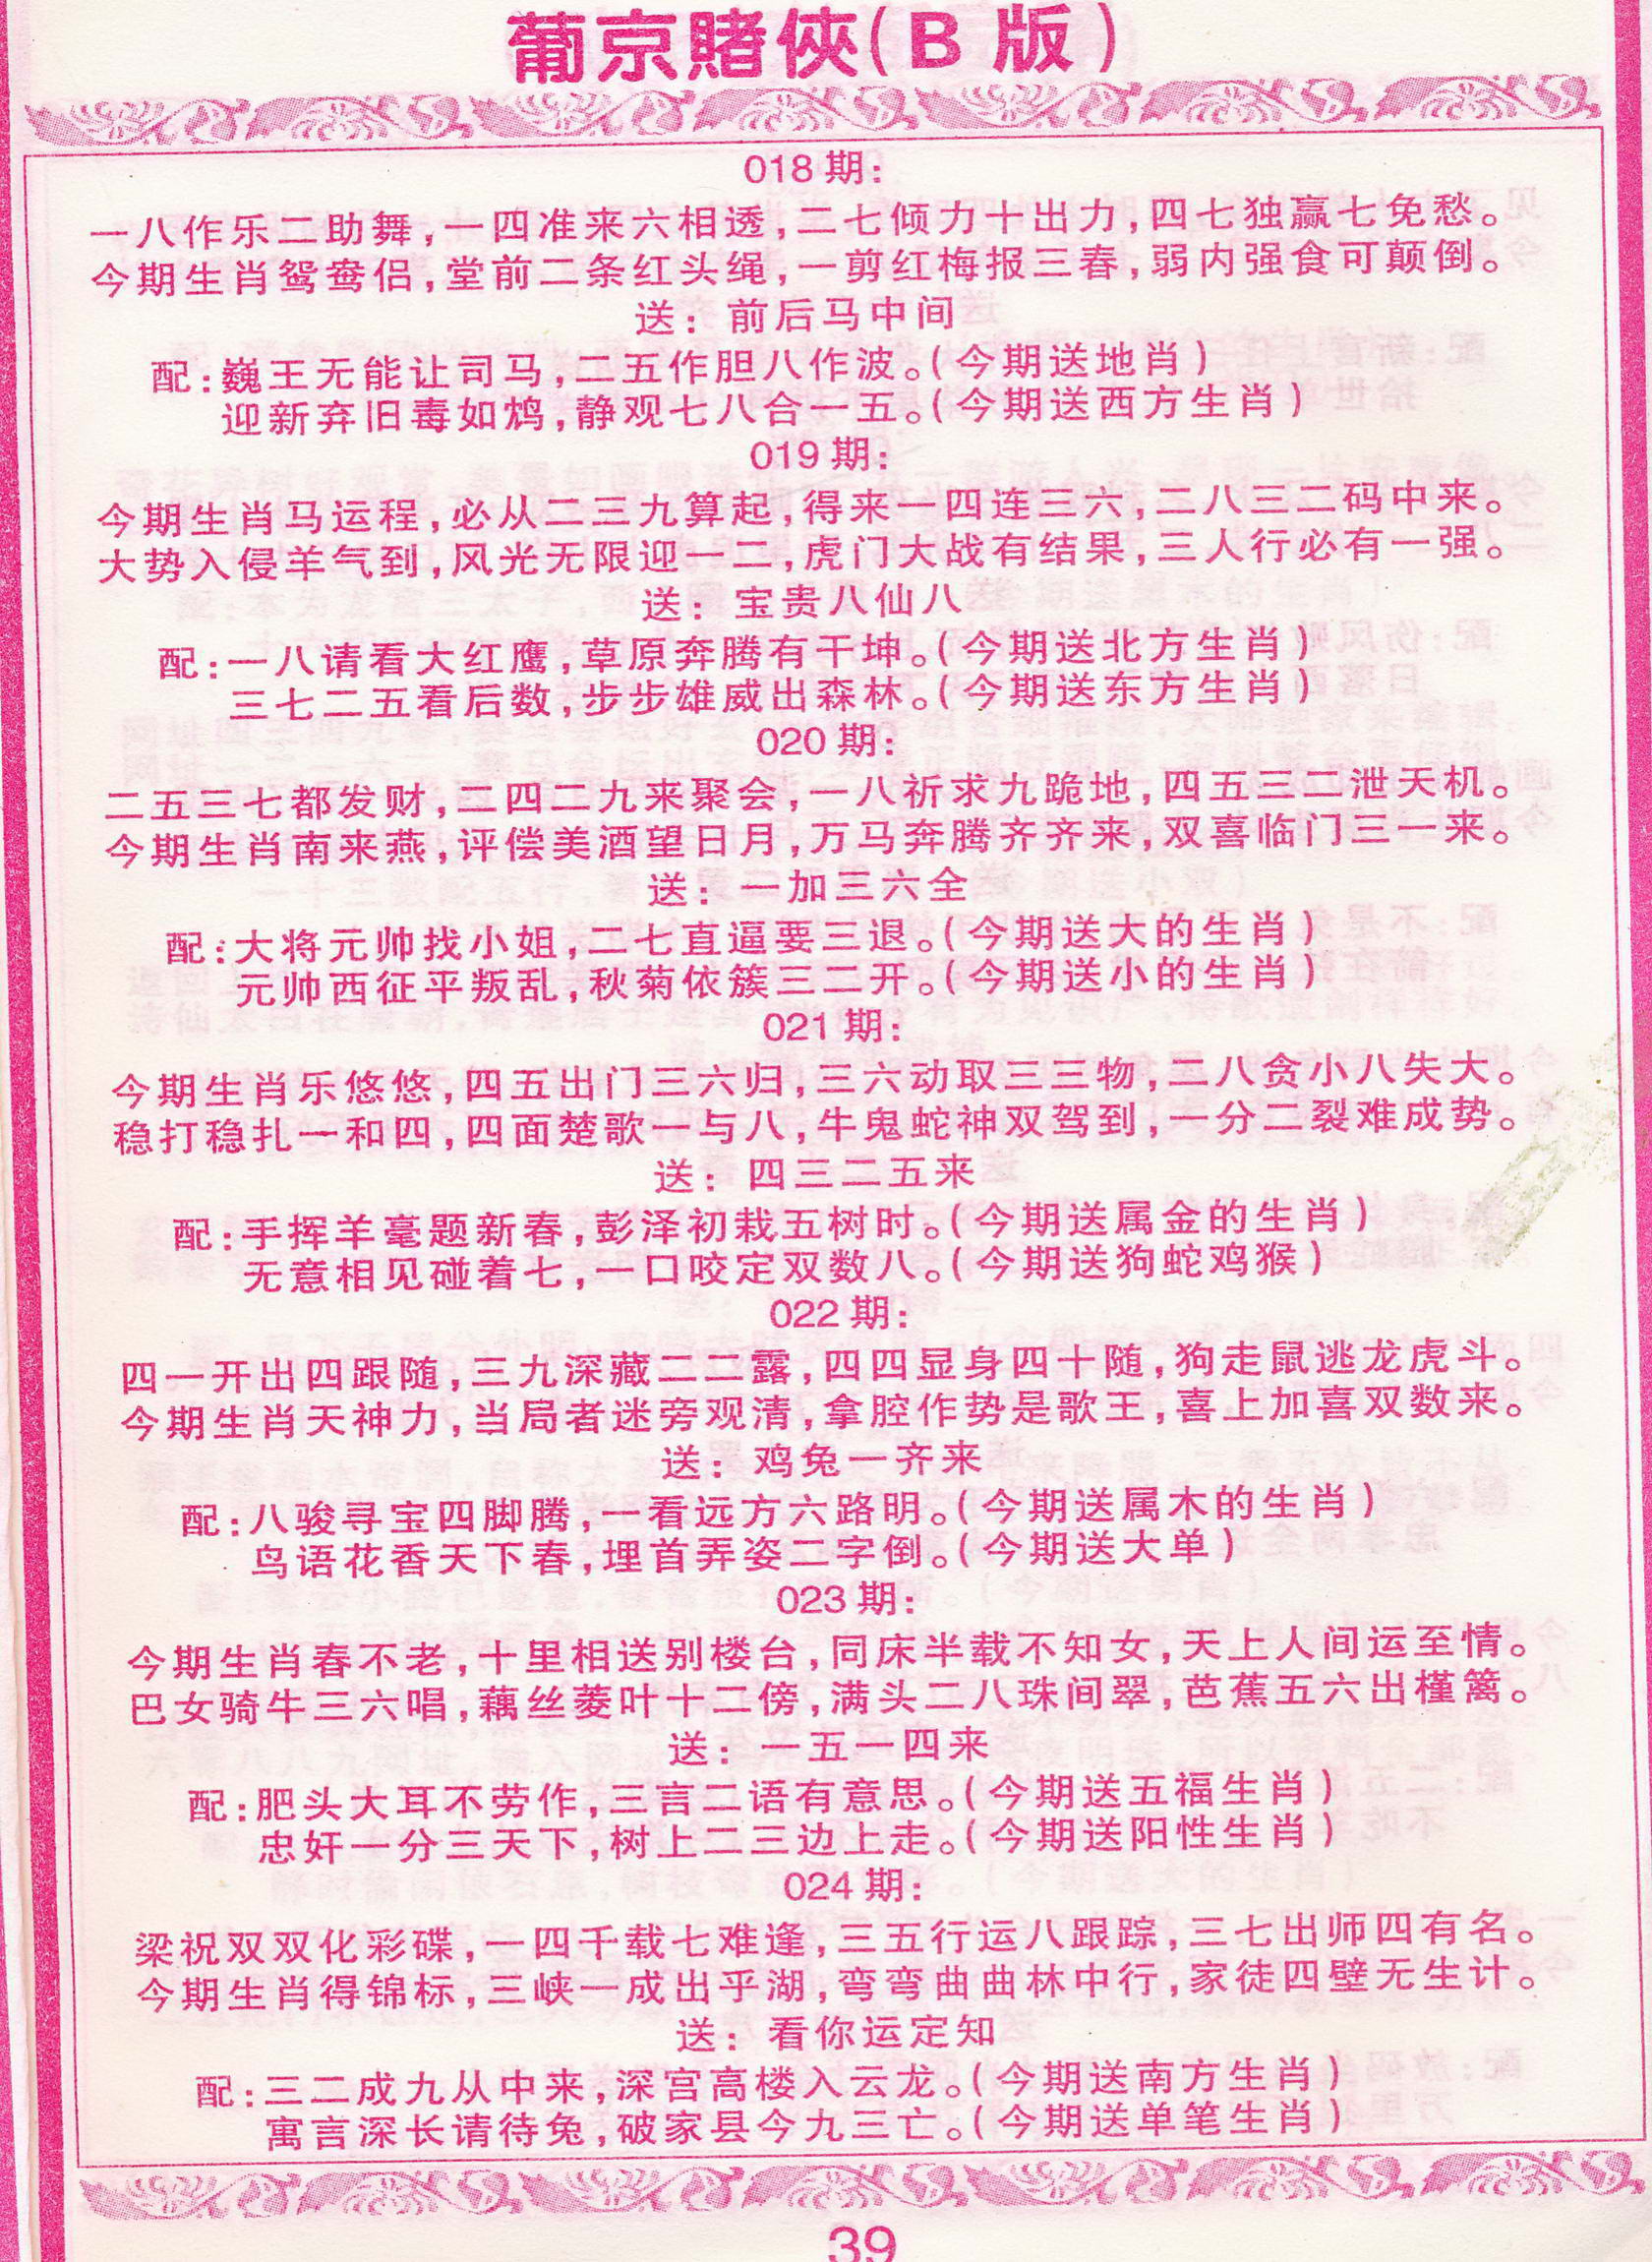 葡京賭俠(B 版)
018期:
一八作乐二助舞,一四准来六相透,二七倾力十出力,四七独赢七免愁。
今期生肖鸳鸯侣,堂前二条红头绳,一剪红梅报三春,弱内强食可颠倒。
送: 前后马中间
配:巍王无能让司马,二五作胆八作波。(今期送地肖)
迎新弃旧毒如鸩,静观七八合一五。(今期送西方生肖)
019期:
今期生肖马运程,必从二三九算起,得来一四连三六,二八三二码中来。
大势入侵羊气到,风光无限迎一二,虎门大战有结果,三人行必有一强。
送: 宝贵八仙八
配:一八请看大红鹰,草原奔腾有干坤。(今期送北方生肖)
三七二五看后数,步步雄威出森林。(今期送东方生肖)
020期:
二五三七都发财,二四二九来聚会,一八祈求九跪地,四五三二泄天机。
今期生肖南来燕,评偿美酒望日月,万马奔腾齐齐来,双喜临门三一来。
送: 一加三六全
配:大将元帅找小姐,二七直逼要三退。(今期送大的生肖)
元帅西征平叛乱,秋菊依簇三二开。(今期送小的生肖)
021期:
今期生肖乐悠悠,四五出门三六归,三六动取三三物,二八贪小八失大。
稳打稳扎一和四,四面楚歌一与八,牛鬼蛇神双驾到,一分二裂难成势。
送: 四三二五来
配:手挥羊毫题新春,彭泽初栽五树时。(今期送属金的生肖)
无意相见碰着七,一口咬定双数八。(今期送狗蛇鸡猴)
022期:
四一开出四跟随,三九深藏二二露,四四显身四十随,狗走鼠逃龙虎斗。
今期生肖天神力,当局者迷旁观清,拿腔作势是歌王,喜上加喜双数来。
送: 鸡兔一齐来
配:八骏寻宝四脚腾,一看远方六路明。(今期送属木的生肖)
鸟语花香天下春,埋首弄姿二字倒。(今期送大单)
023期:
今期生肖春不老,十里相送别楼台,同床半载不知女,天上人间运至情。
巴女骑牛三六唱,藕丝菱叶十二傍,满头二八珠间翠,芭蕉五六出槿篱。
送: 一五一四来
配:肥头大耳不劳作,三言二语有意思。(今期送五福生肖)
忠奸一分三天下,树上二三边上走。(今期送阳性生肖)
024期:
梁祝双双化彩碟,一四千载七难逢,三五行运八跟踪,三七出师四有名。
今期生肖得锦标,三峡一成出乎湖,弯弯曲曲林中行,家徒四壁无生计。
送: 看你运定知
配:三二成九从中来,深宫高楼入云龙。(今期送南方生肖)
寓言深长请待兔,破家县今九三亡。(今期送单笔生肖)
39